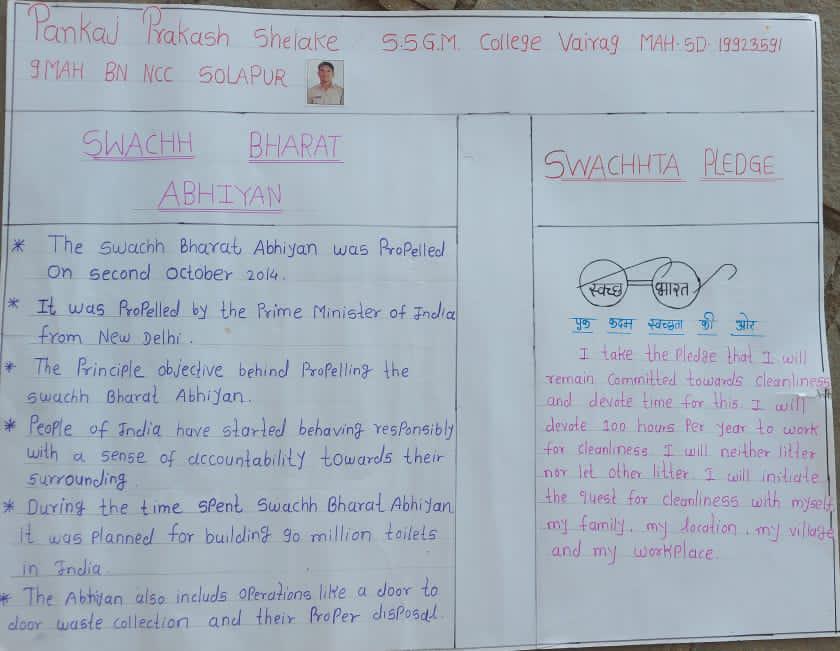 Pankaj Prakash Shelake S.S.G.M. College Vairag MAH.SD.19923591
9 MAH BN NCC SOLAPUR
SWACHH BHARAT
ABHIYAN
* The Swachh Bharat Abhiyan was Propelled
On second October 2014.
* It was Propelled by the Prime Minister of India
from New Delhi.
* The Principle objective behind Propelling the
swachh Bharat Abhiyan.
* People of India have started behaving responsibly
with a sense of accountability towards their
surrounding.
* During the time spent Swachh Bharat Abhiyan
it was planned for building 90 million toilets
in India.
* The Abhiyan also includs operations like a door to
door waste collection and their Proper disposal.
SWACHHTA PLEDGE
स्वच्छ भारत
एक कदम स्वच्छता की ओर
I take the Pledge that I will
remain Committed towards cleanliness
and devote time for this. I will
devote 100 hours Per year to work
for cleanliness. I will neither litter
nor let other litter. I will initiate
the quest for cleanliness with myself,
my family, my location, my village
and my workplace.